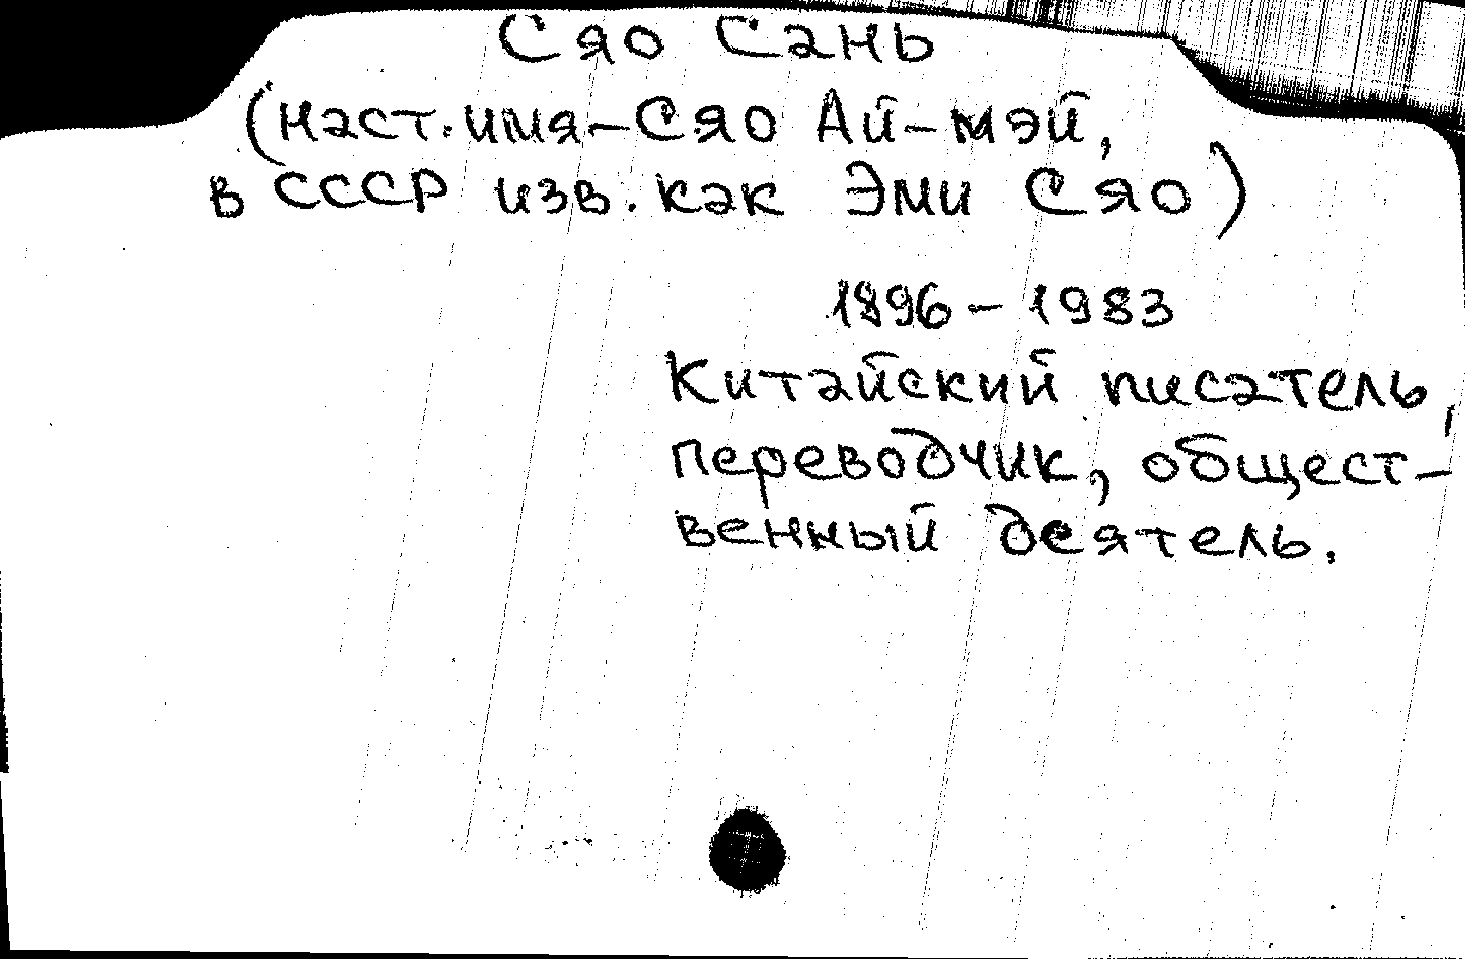 Сяо Сань
(наст. имя - Сяо Ай-мэй,
в СССР изв. как Эми Сяо)
1896 - 1983
Китайский писатель,
переводчик, общест-
венный деятель.